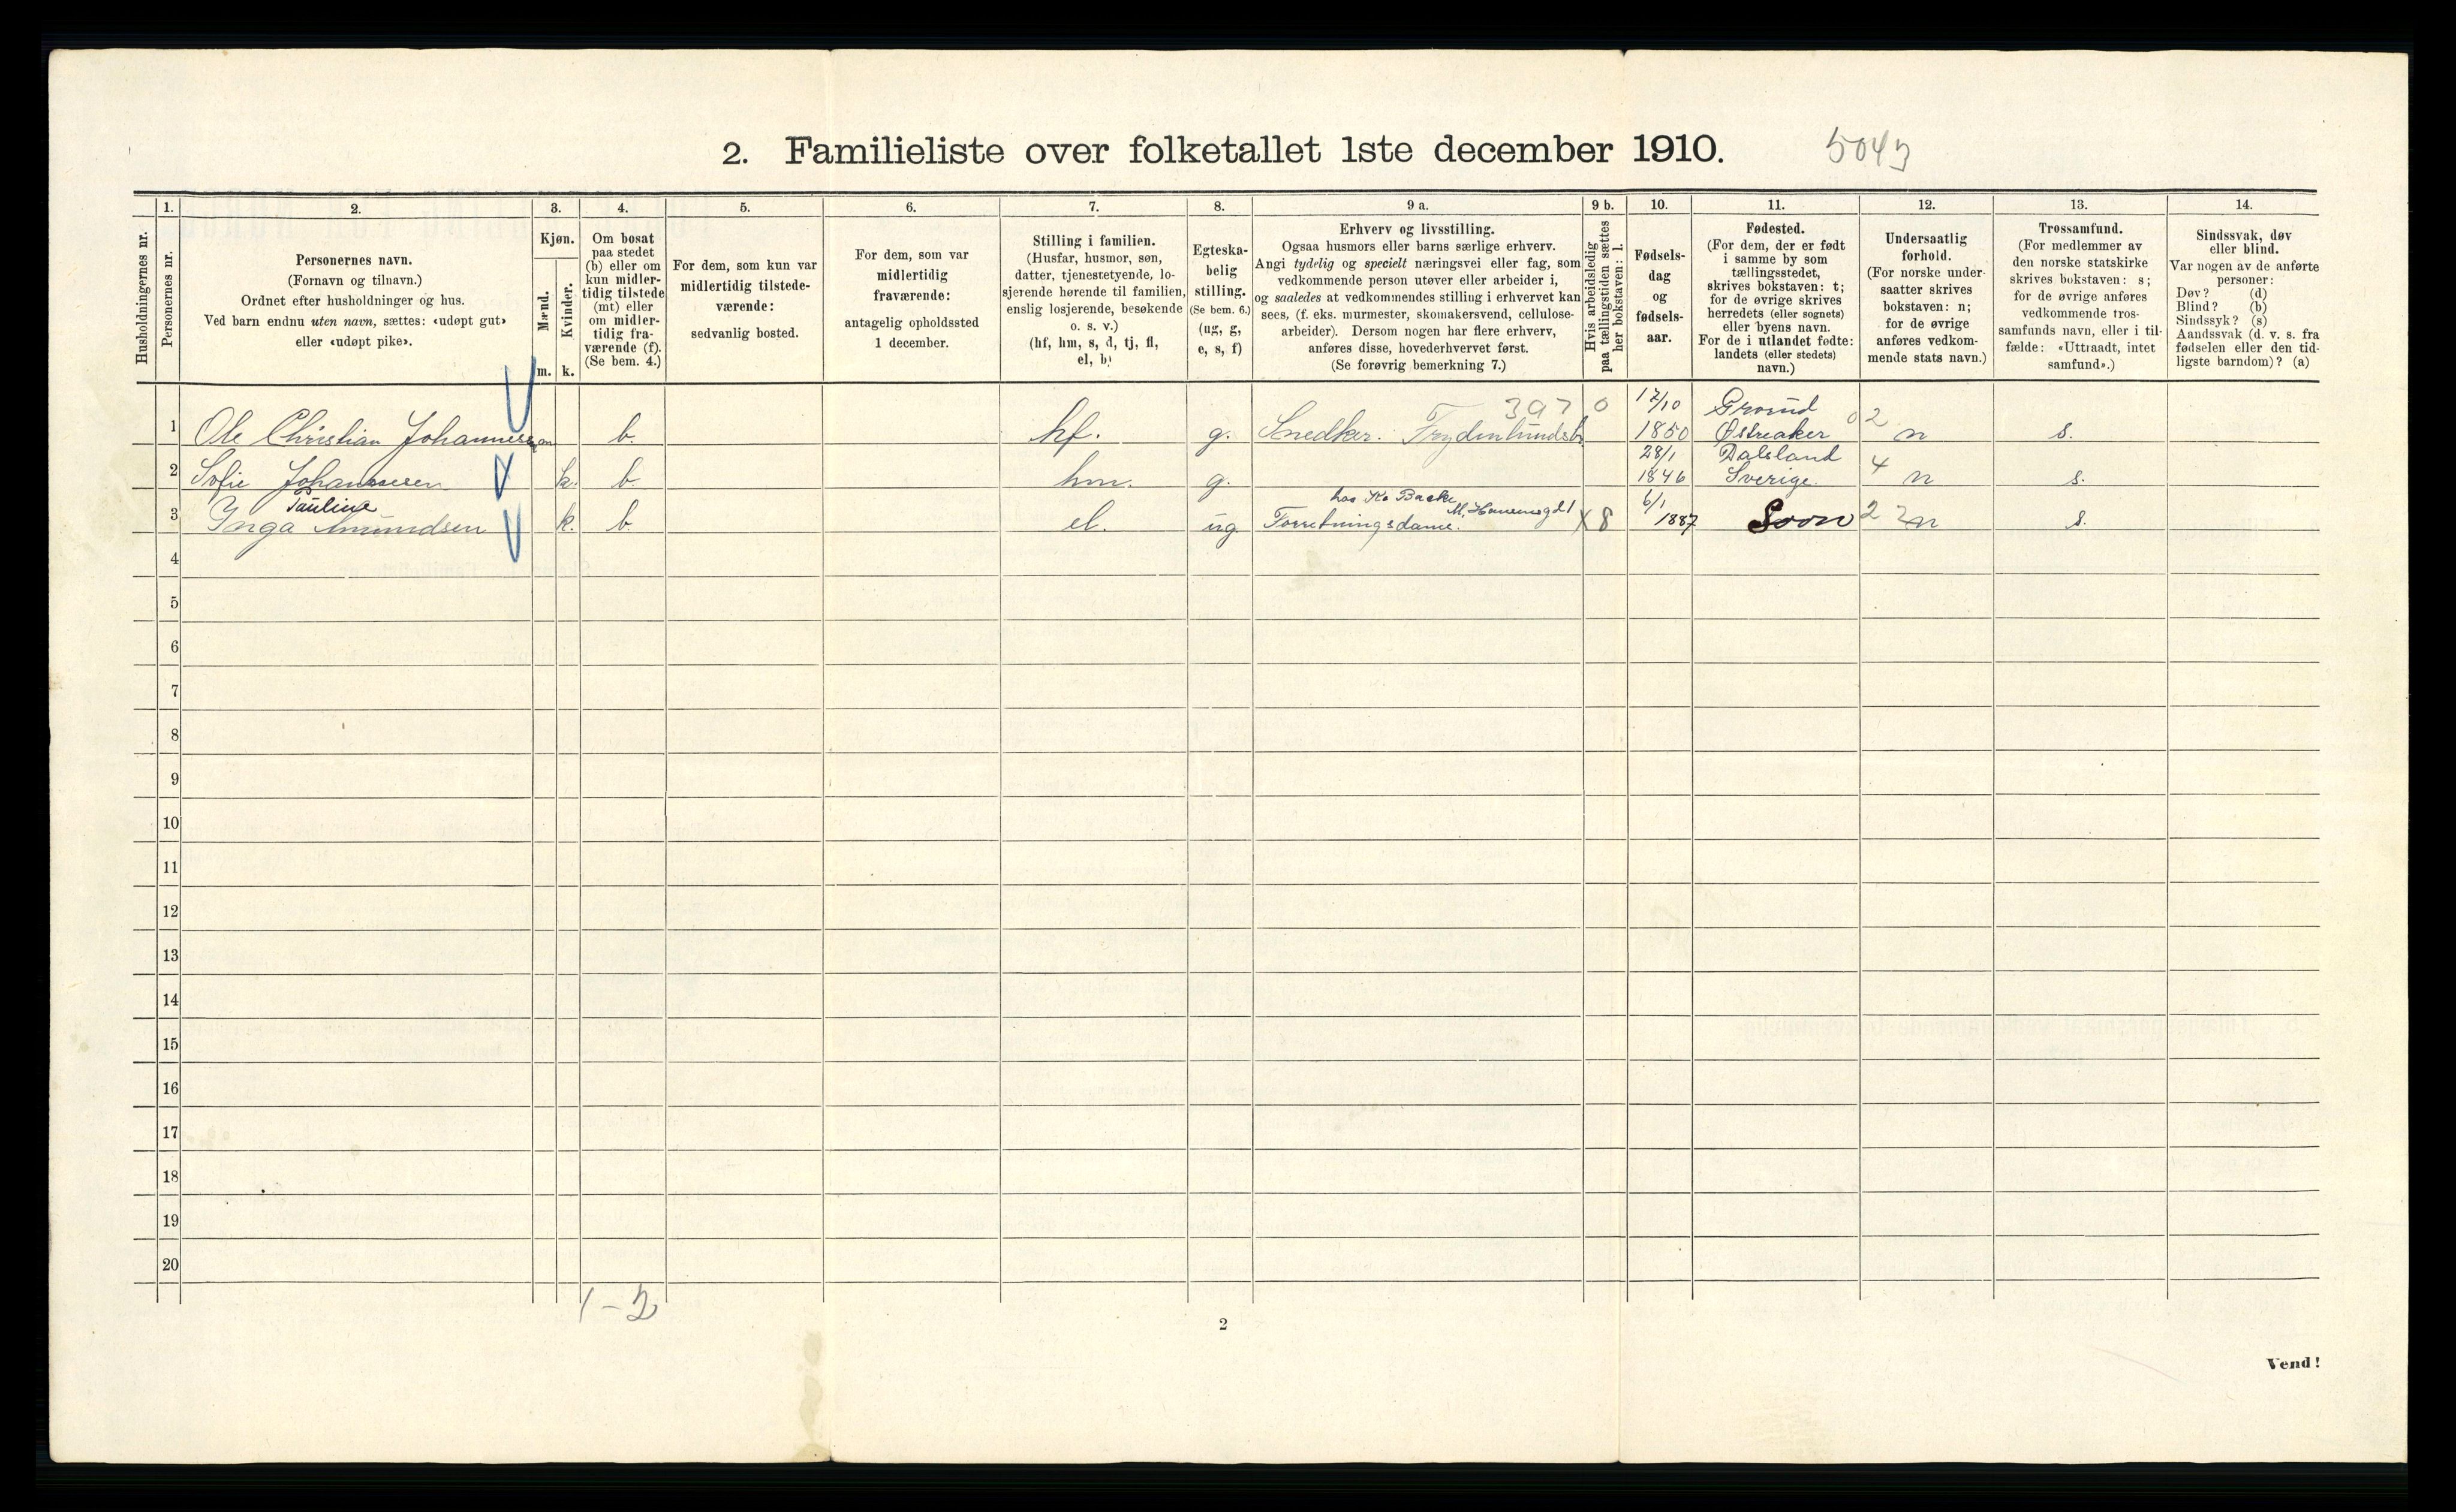 2. Familieliste over folketallet 1ste december 1910. 5043
Husholdningernes nr.
1.
Personernes nr.
2.
Personernes navn.
(Fornavn og tilnavn.)
Ordnet efter husholdninger og hus.
Ved barn endnu uten navn, sættes: «udøpt gut»
eller «udøpt pike».
3.
Kjøn.
Mænd.
Kvinder.
m. k.
4.
Om bosat
paa stedet
(b) eller om
kun midler-
tidig tilstede
(mt) eller
om midler-
tidig fra-
værende (f).
(Se bem. 4.)
5.
For dem, som kun var
midlertidig tilstede-
værende:
sedvanlig bosted.
6.
For dem, som var
midlertidig
fraværende:
antagelig opholdssted
1 december.
7.
Stilling i familien.
(Husfar, husmor, søn,
datter, tjenestetyende, lo-
sjerende hørende til familien,
enslig losjerende, besøkende
o. s. v.)
(hf, hm, s, d, tj, fl,
el, b)
8.
Egteska-
belig
stilling.
(Se bem. 6.)
(ug, g,
e, s, f)
9 a.
Erhverv og livsstilling.
Ogsaa husmors eller barns særlige erhverv.
Angi tydelig og specielt næringsvei eller fag, som
vedkommende person utøver eller arbeider i,
og saaledes at vedkommendes stilling i erhvervet kan
sees, (f. eks. murmester, skomakersvend, cellulose-
arbeider). Dersom nogen har flere erhverv,
anføres disse, hovederhvervet først.
(Se forøvrig bemerkning 7.)
9 b.
Hvis arbeidsledig
paa tællingstiden sættes
her bokstaven: l.
10.
Fødsels-
dag
og
fødsels-
aar.
11.
Fødested.
(For dem, der er født
i samme by som
tællingsstedet,
skrives bokstaven: t;
for de øvrige skrives
herredets (eller sognets)
eller byens navn.
For de i utlandet fødte:
landets (eller stedets)
navn.)
12.
Undersaatlig
forhold.
(For norske under-
saatter skrives
bokstaven: n;
for de øvrige
anføres vedkom-
mende stats navn.)
13.
Trossamfund.
(For medlemmer av
den norske statskirke
skrives bokstaven: s;
for de øvrige anføres
vedkommende tros-
samfunds navn, eller i til-
fælde: «Uttraadt, intet
samfund».)
14.
Sindssvak, døv
eller blind.
Var nogen av de anførte
personer:
Døv? (d)
Blind? (b)
Sindssyk? (s)
Aandssvak (d. v. s. fra
fødselen eller den tid-
ligste barndom)? (a)
397 0 17/10 Grorud 02
1 Ole Christian Johannessen m b. hf. g. Snedker. Frydenlundsb. 1850 Østreaker n s.
28/1 Dalsland 4
2 Sofie Johannesen k. b. hm. g. 1846 Sverige. n s.
Pauline hos Ko Backe M. Hansensgd 1 6/1
3 Inga Amundsen k. b el. ug. Forretningsdame. X 8 1887 Soon 22 n s.
4
5
6
7
8
9
10
11
12
13
14
15
16
17
18
19
20
1-2
2
Vend!